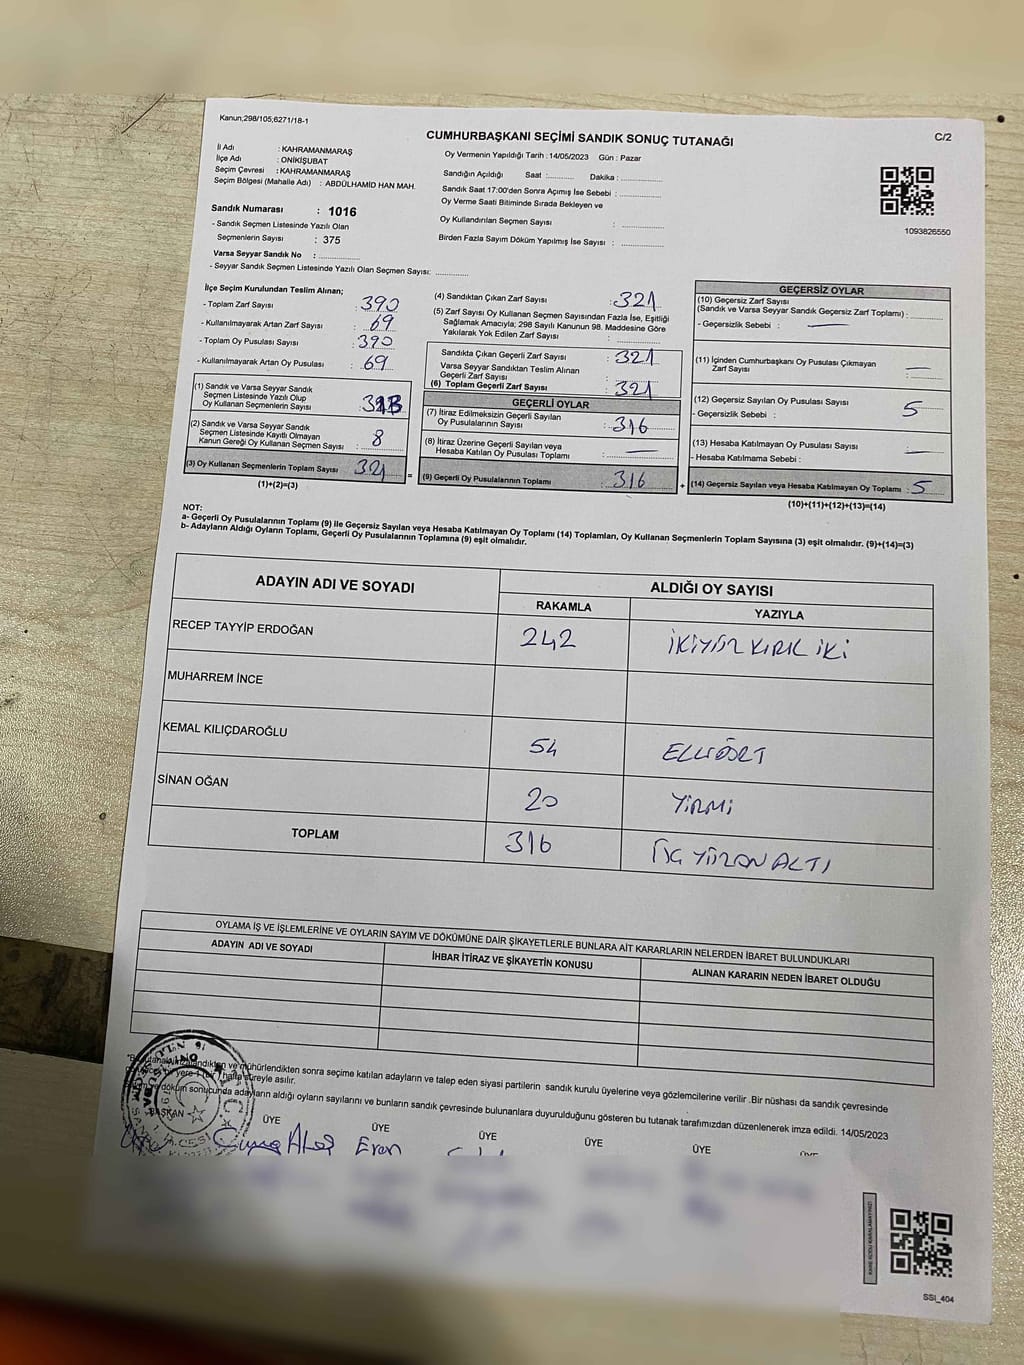 Kanun;298/105,6271/18-1
C/2
CUMHURBAŞKANI SEÇİMİ SANDIK SONUÇ TUTANAĞI
İl Adı : KAHRAMANMARAŞ
İlçe Adı : ONİKİŞUBAT
Seçim Çevresi : KAHRAMANMARAŞ
Seçim Bölgesi (Mahalle Adı) : ABDÜLHAMİD HAN MAH.
Sandık Numarası : 1016
- Sandık Seçmen Listesinde Yazılı Olan
Seçmenlerin Sayısı : 375
Varsa Seyyar Sandık No : ............
- Seyyar Sandık Seçmen Listesinde Yazılı Olan Seçmen Sayısı: ............
Oy Vermenin Yapıldığı Tarih : 14/05/2023 Gün : Pazar
Sandığın Açıldığı Saat :......... Dakika : ............
Sandık Saat 17:00'den Sonra Açımış İse Sebebi : ............
Oy Verme Saati Bitiminde Sırada Bekleyen ve
Oy Kullandırılan Seçmen Sayısı : ............
Birden Fazla Sayım Döküm Yapılmış İse Sayısı : ............
1093826550
İlçe Seçim Kurulundan Teslim Alınan;
- Toplam Zarf Sayısı : 390
- Kullanılmayarak Artan Zarf Sayısı : 69
- Toplam Oy Pusulası Sayısı : 390
- Kullanılmayarak Artan Oy Pusulası : 69
(1) Sandık ve Varsa Seyyar Sandık
Seçmen Listesinde Yazılı Olup
Oy Kullanan Seçmenlerin Sayısı :
(2) Sandık ve Varsa Seyyar Sandık
Seçmen Listesinde Kayıtlı Olmayan
Kanun Gereği Oy Kullanan Seçmen Sayısı : 8
(3) Oy Kullanan Seçmenlerin Toplam Sayısı : 321 =
(1)+(2)=(3)
(4) Sandıktan Çıkan Zarf Sayısı : 321
(5) Zarf Sayısı Oy Kullanan Seçmen Sayısından Fazla İse, Eşitliği
Sağlamak Amacıyla; 298 Sayılı Kanunun 98. Maddesine Göre
Yakılarak Yok Edilen Zarf Sayısı : ............
Sandıkta Çıkan Geçerli Zarf Sayısı : 321
Varsa Seyyar Sandıktan Teslim Alınan
Geçerli Zarf Sayısı :
(6) Toplam Geçerli Zarf Sayısı : 321
GEÇERLİ OYLAR
(7) İtiraz Edilmeksizin Geçerli Sayılan
Oy Pusulalarının Sayısı : 316
(8) İtiraz Üzerine Geçerli Sayılan veya
Hesaba Katılan Oy Pusulası Toplamı : —
(9) Geçerli Oy Pusulalarının Toplamı : 316 +
GEÇERSİZ OYLAR
(10) Geçersiz Zarf Sayısı
(Sandık ve Varsa Seyyar Sandık Geçersiz Zarf Toplamı) : ............
- Geçersizlik Sebebi : —
(11) İçinden Cumhurbaşkanı Oy Pusulası Çıkmayan
Zarf Sayısı : —
(12) Geçersiz Sayılan Oy Pusulası Sayısı : 5
- Geçersizlik Sebebi :
(13) Hesaba Katılmayan Oy Pusulası Sayısı : —
- Hesaba Katılmama Sebebi :
(14) Geçersiz Sayılan veya Hesaba Katılmayan Oy Toplamı : 5
(10)+(11)+(12)+(13)=(14)
NOT:
a- Geçerli Oy Pusulalarının Toplamı (9) ile Geçersiz Sayılan veya Hesaba Katılmayan Oy Toplamı (14) Toplamları, Oy Kullanan Seçmenlerin Toplam Sayısına (3) eşit olmalıdır. (9)+(14)=(3)
b- Adayların Aldığı Oyların Toplamı, Geçerli Oy Pusulalarının Toplamına (9) eşit olmalıdır.
ADAYIN ADI VE SOYADI ALDIĞI OY SAYISI
RAKAMLA YAZIYLA
RECEP TAYYİP ERDOĞAN 242 İKİYÜZ KIRK İKİ
MUHARREM İNCE
KEMAL KILIÇDAROĞLU 54 ELLİDÖRT
SİNAN OĞAN 20 YİRMİ
TOPLAM 316 ÜÇ YÜZONALTI
OYLAMA İŞ VE İŞLEMLERİNE VE OYLARIN SAYIM VE DÖKÜMÜNE DAİR ŞİKAYETLERLE BUNLARA AİT KARARLARIN NELERDEN İBARET BULUNDUKLARI
ADAYIN ADI VE SOYADI İHBAR İTİRAZ VE ŞİKAYETİN KONUSU ALINAN KARARIN NEDEN İBARET OLDUĞU
ve mühürlendikten sonra seçime katılan adayların ve talep eden siyasi partilerin sandık kurulu üyelerine veya gözlemcilerine verilir .Bir nüshası da sandık çevresinde
hafta süreyle asılır.
döküm sonucunda adayların aldığı oyların sayılarını ve bunların sandık çevresinde bulunanlara duyurulduğunu gösteren bu tutanak tarafımızdan düzenlenerek imza edildi. 14/05/2023
BAŞKAN ÜYE ÜYE ÜYE ÜYE ÜYE ÜYE
Eren
KARE KODU KARALAMAYINIZ!
SSI_404